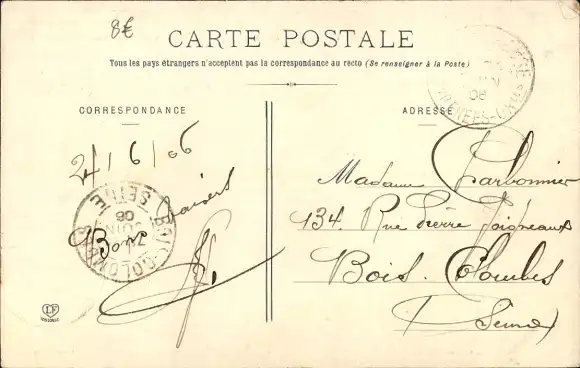 8€
CARTE POSTALE
Tous les pays étrangers n'acceptent pas la correspondance au recto (Se renseigner à la Poste)
CORRESPONDANCE
24/6/06
Bons baisers
BOIS-COLOMBES
SEINE
JUIN
06
LF
ADRESSE
06
Madame Carbonnier
134. Rue Pierre Joigneaux
Bois. Colombes
(Seine)